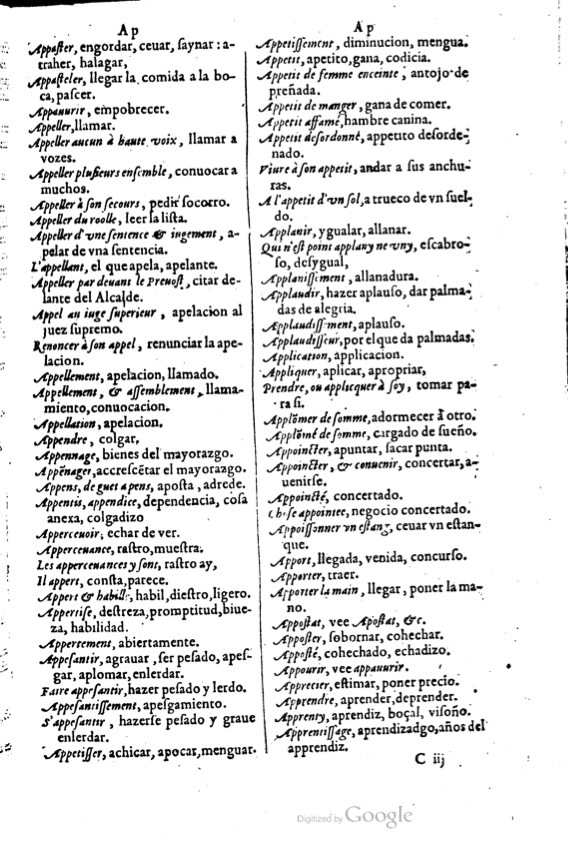 Ap
Appaſter, engordar, ceuar, ſaynar : a-
traher, halagar,
Appaſteler, llegar la comida a la bo-
ca, paſcer.
Appauurir, empobrecer.
Appeller, llamar.
Appeller aucun à haute voix, llamar a
vozes.
Appeller pluſieurs enſemble, conuocar a
muchos.
Appeller à ſon ſecours, pedir ſocorro.
Appeller du roolle, leer la liſta.
Appeller d'vne ſentence & iugement, a-
pelar de vna ſentencia.
L'appellant, el que apela, apelante.
Appeller par deuant le Preuoſt, citar de-
lante del Alcalde.
Appel au iuge ſuperieur, apelacion al
juez ſupremo.
Renoncer à ſon appel, renunciar la ape-
lacion.
Appellement, apelacion, llamado.
Appellement, & aſſemblement, llama-
miento, conuocacion.
Appellation, apelacion.
Appendre, colgar,
Appennage, bienes del mayorazgo.
Appẽnager, accreſcẽtar el mayorazgo.
Appens, de guet apens, apoſta, adrede.
Appentis, appendice, dependencia, coſa
anexa, colgadizo
Apperceuoir, echar de ver.
Apperceuance, raſtro, mueſtra.
Les apperceuances y ſont, raſtro ay,
Il appert, conſta, parece.
Appert & habille, habil, dieſtro, ligero.
Appertiſe, deſtreza, promptitud, biue-
za, habilidad.
Appertement, abiertamente.
Appeſantir, agrauar, ſer peſado, apeſ-
gar, aplomar, enlerdar.
Faire appeſantir, hazer peſado y lerdo.
Appeſantiſſement, apeſgamiento.
S'appeſantir, hazerſe peſado y graue
enlerdar.
Appetiſſer, achicar, apocar, menguar.
Ap
Appetiſſement, diminucion, mengua.
Appetit, apetito, gana, codicia.
Appetit de femme enceinte, antojo de
preñada.
Appetit de manger, gana de comer.
Appetit affamé, hambre canina.
Appetit deſordonné, appetito deſorde-
nado.
Viure à ſon appetit, andar a ſus anchu-
ras.
A l'appetit d'vn ſol, a trueco de vn ſuel-
do.
Applanir, ygualar, allanar.
Qui n'eſt point applany ne vny, eſcabro-
ſo, deſygual,
Applaniſſiment, allanadura.
Applaudir, hazer aplauſo, dar palma-
das de alegria.
Applaudiſſement, aplauſo.
Applaudiſſeur, por el que da palmadas.
Application, applicacion.
Appliquer, aplicar, apropriar,
Prendre, ou applicquer à ſoy, tomar pa-
ra ſi.
Applõmer de ſomme, adormecer à otro.
Applõmé de ſomme, cargado de ſueño.
Appoincter, apuntar, ſacar punta.
Appoincter, & conuenir, concertar, a-
uenirſe.
Appoincté, concertado.
Choſe appointee, negocio concertado.
Appoiſſonner vn eſtang, ceuar vn eſtan-
que.
Apport, llegada, venida, concurſo.
Apporter, traer.
Apporter la main, llegar, poner la ma-
no.
Appoſtat, vee Apoſtat, &c.
Appoſter, ſobornar, cohechar.
Appoſté, cohechado, echadizo.
Appourir, vee appauurir.
Apprecier, eſtimar, poner precio.
Apprendre, aprender, deprender.
Apprenty, aprendiz, boçal, viſoño.
Apprentiſſage, aprendizadgo, años del
apprendiz.
C iij
Digitized by Google